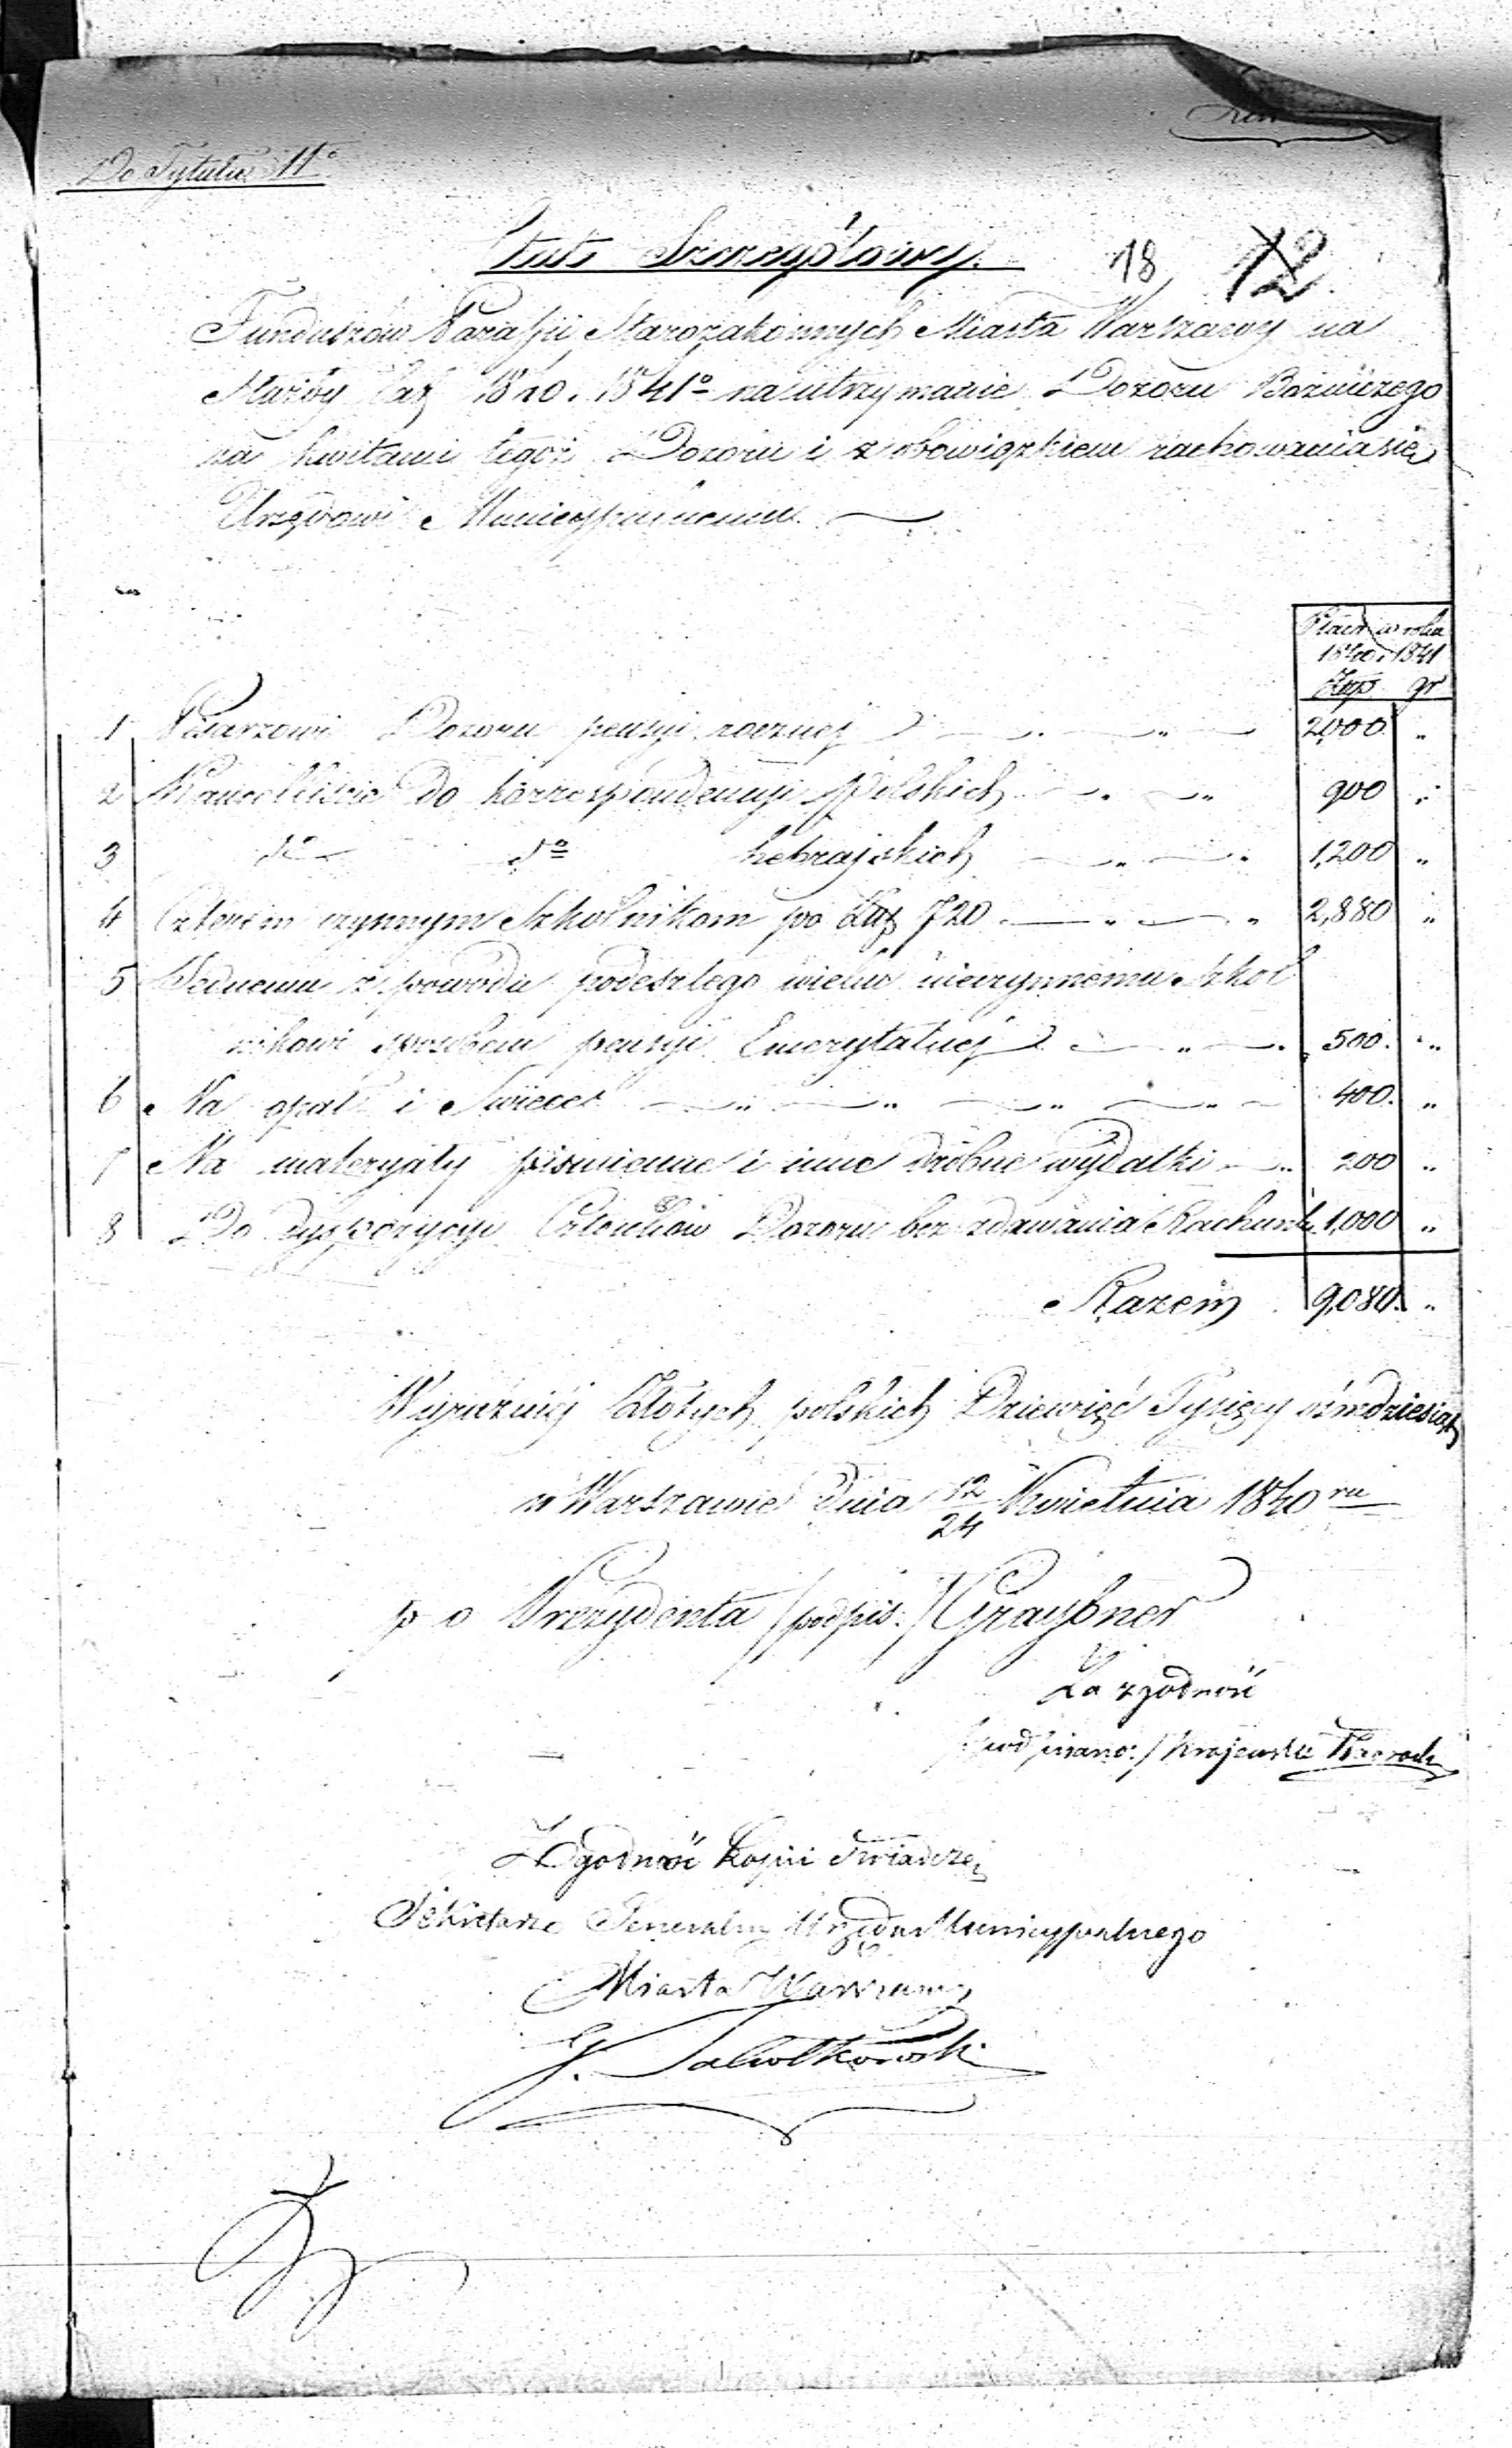 Do Tytułu II°
Etat Szczegółowy.
18 12
Funduszów Parafii Starozakonnych Miasta Warszawy na
każdy rok 1840. 1841° na utrzymanie Dozoru Bożniczego
za kwitami tegoż Dozoru i z obowiązkiem rachowania się
Urzędowi Municypalnemu.
Płaca w roku
1840 i 1841
Złp. gr
1 Pisarzowi Dozoru pensyi rocznej 2,000 "
2 Kancelliście do korrespondencyi Polskich 900 "
3 do do hebrajskich 1,200 "
4 Czterem czynnym Szkolnikom po Złp 720 2,880 "
5 Jednemu z powodu podeszłego wieku nieczynnemu Szkol
nikowi sposobem pensyi Emerytalnej 500. "
6 Na opał i Świece 400. "
7 Na materyały piśmienne i inne drobne wydatki 200 "
8 Do dyspozycyi Członków Dozoru bez zdawania Rachunk. 1,000 "
Razem 9,080. "
Wyraźniej Złotych polskich Dziewięć Tysięcy ośmdziesiąt
w Warszawie dnia 12/24 Kwietnia 1840 ru
p o Prezydenta /podpis:/ Graybner
Za zgodność
/:podpisano:/ Krajewski
Zgodność Kopii Świadczę
Sekretarz Generalny Urzędu Municypalnego
Miasta Warszawy